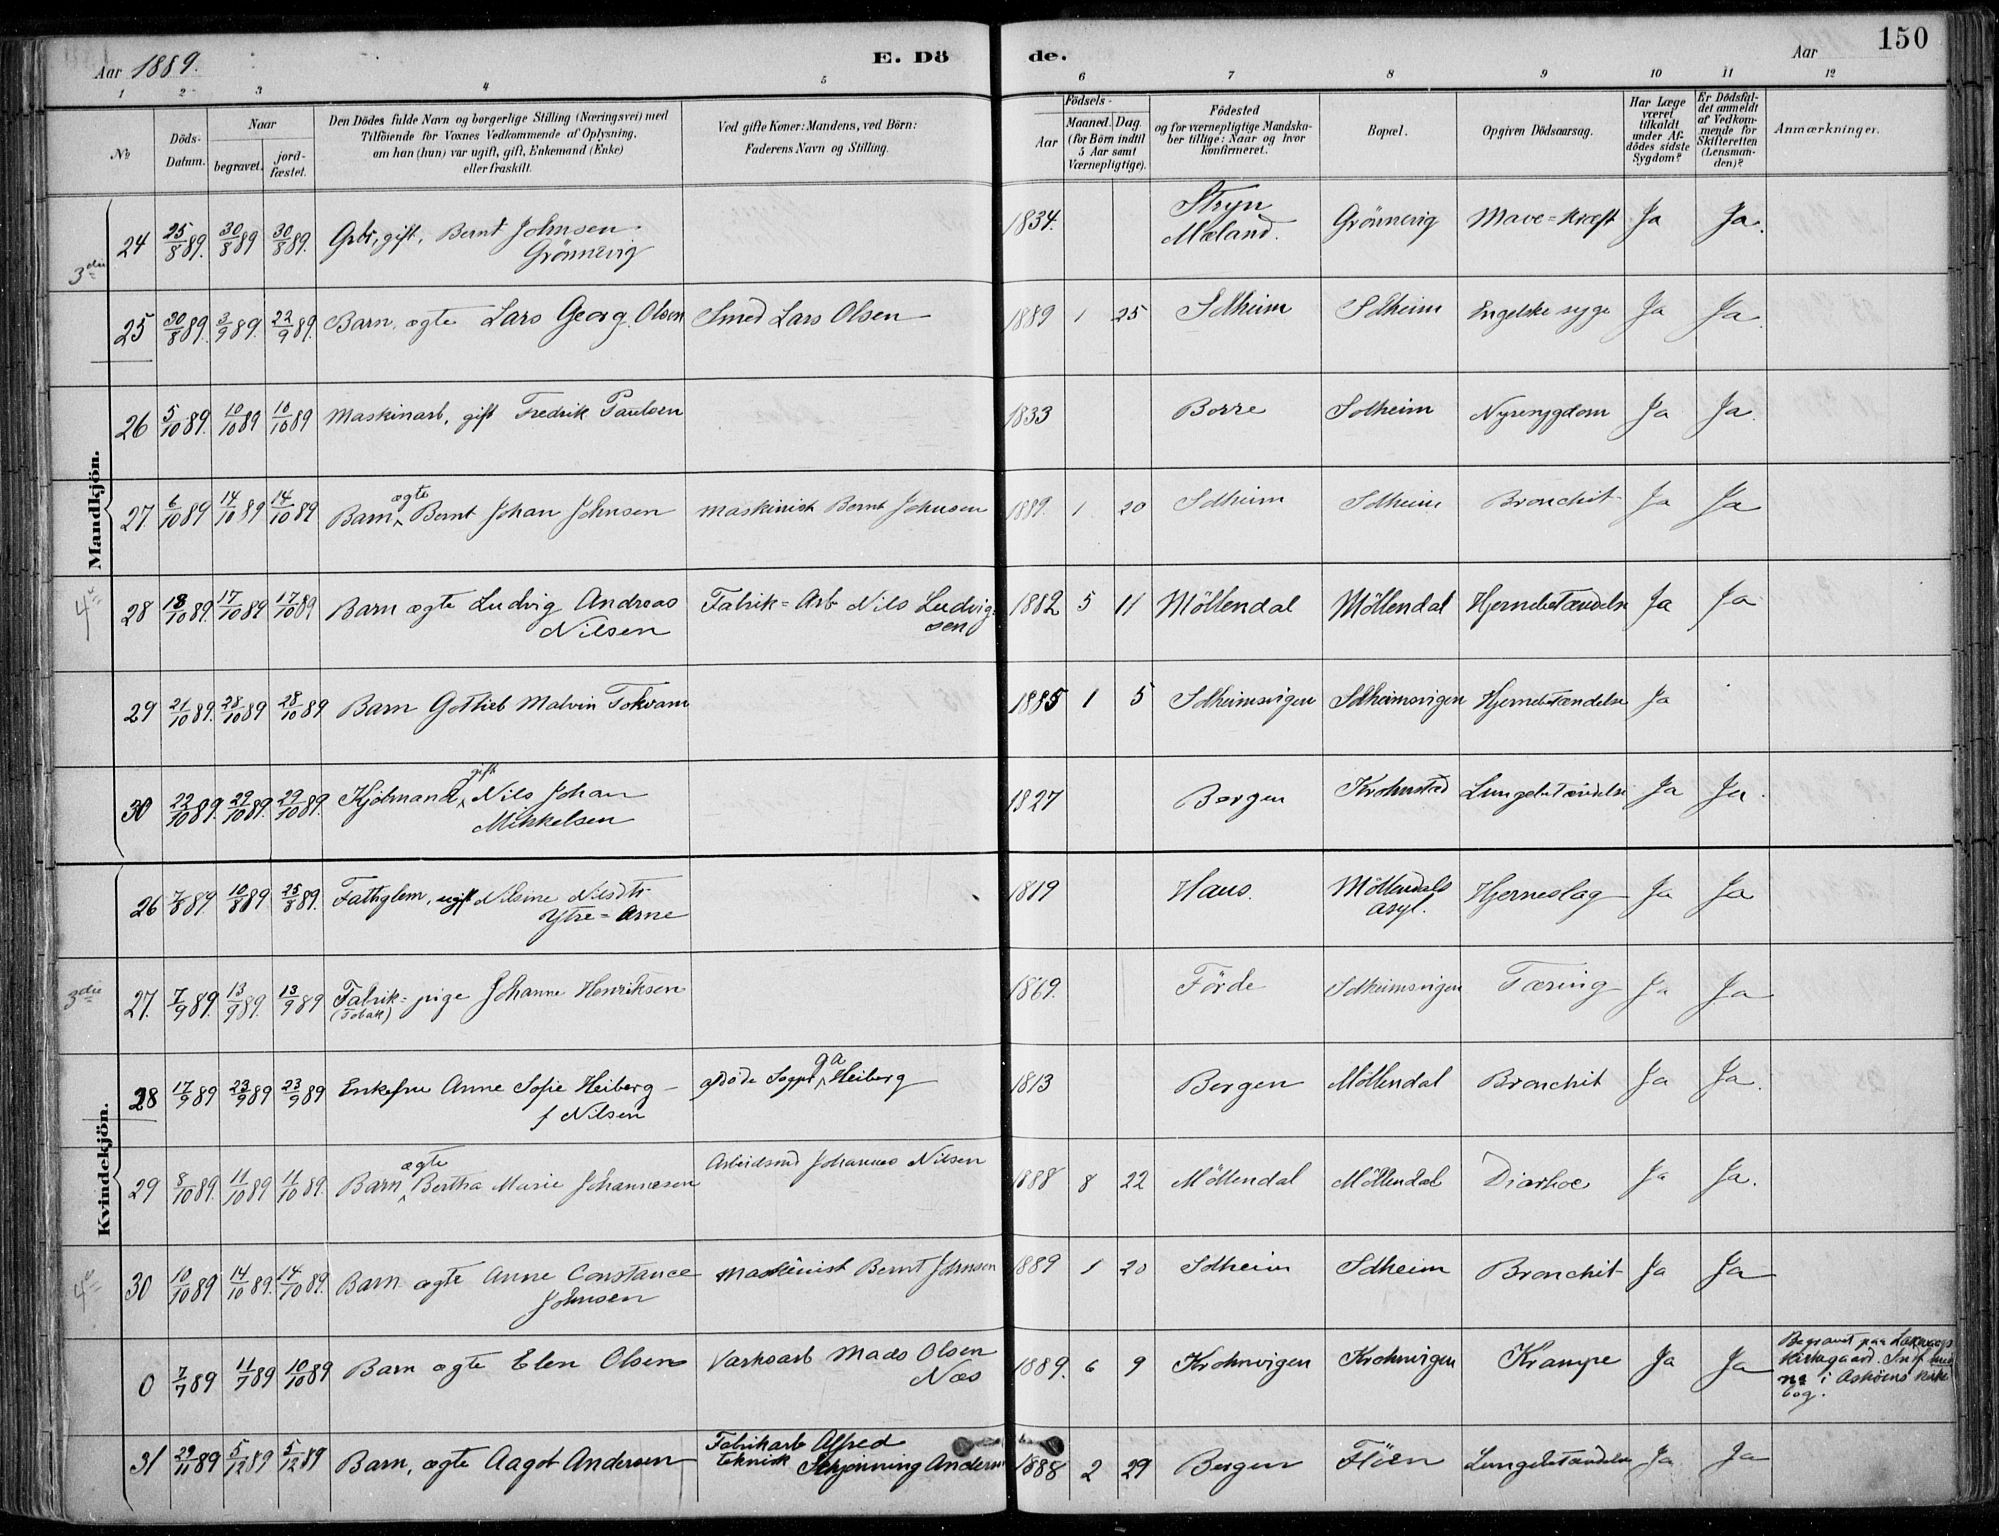 150
Aar 1889.
E. Döde.
Aar
1 2 3 4 5 6 7 8 9 10 11 12
No
Döds-Datum.
Naar
begravet.
jord-fæstet.
Den Dödes fulde Navn og borgerlige Stilling (Næringsvei) med
Tilföiende for Voxnes Vedkommende af Oplysning,
om han (hun) var ugift, gift, Enkemand (Enke)
eller fraskilt.
Ved gifte Koner: Mandens, ved Börn:
Faderens Navn og Stilling.
Födsels-
Aar
Maaned. Dag.
(for Börn indtil 5 Aar samt Værnepligtige).
Födested
og for værnepligtige Mandska-
ber tillige: Naar og hvor
konfirmeret.
Bopæl.
Opgiven Dödsaarsag.
Har Læge været tilkaldt under Af-dödes sidste Sygdom?
Er Dödsfal-det anmeldt af Vedkom-mende for Skifteretten (Lensman-den)?
Anmærkninger.
Mandkjön.
3die
24 25/8 89. 30/8 89 30/8 89. Gbr, gift, Bernt Johnsen Grönnevig 1834. Stryn Mæland. Grönnevig Mave=kræft Ja Ja.
25 30/8 89. 3/9 89. 22/9 89. Barn, ægte Lars Georg Olsen Smed Lars Olsen 1889 1 25 Solheim Solheim Engelske syge Ja Ja.
26 5/10 89. 10/10 89 10/10 89 Maskinarb, gift Fredrik Paulsen 1833 Borre Solheim Nyresygdom Ja Ja.
27 6/10 89 14/10 89 14/10 89 Barn ægte Bernt Johan Johnsen Maskinist Bernt Johnsen 1889. 1 20 Solheim Solheim Bronchit Ja Ja
4e
28 13/10 89. 17/10 89 17/10 89 Barn ægte Ludvig Andreas Nilsen Fabrik=Arb Nils Ludvigsen 1882 5 11 Möllendal Möllendal Hjernebetændelse Ja Ja
29 21/10 89. 28/10 89 28/10 89 Barn Gottlieb Malvin Tokvam 1885 1 5 Solheimsvigen Solheimsvigen Hjernebetændelse Ja
30 22/10 89. 29/10 89. 29/10 89. Kjölmand gift Nils Johan Mikkelsen 1827 Bergen Krohnsted Lungebetændelse Ja Ja.
Kvindekjön.
26 7/8 89 10/8 89 25/8 89. Fattiglem, ugift Nilsine Nilsdtr Ytre=Arne 1819 Haus. Möllendals asyl. Hjerneslag Ja Ja
3die
27. 7/9 89. 13/9 89. 13/9 89 Fabrik=pige (Tobak) Johanne Henriksen 1869. Förde Solheimsvigen Tæring Ja Ja
28 17/9 89 23/9 89 23/9 89 Enkefru Anne Sofie Heiberg f Nilsen afdöde Heiberg 1813 Bergen Möllendal Bronchit Ja Ja.
29 8/10 89. 11/10 89 11/10 89. Barn ægte Bertha Marie Johannesen Arbeidsmd Johannes Nilsen 1888 8 22 Möllendal Möllendal Diarhoe Ja Ja.
4e
30 10/10 89 14/10 89. 14/10 89. Barn ægte Anne Constance Johnsen Maskinist Bernt Johnsen 1889 1 20 Solheim Solheim Bronchit Ja Ja
0 7/7 89 11/7 89 10/10 89 Barn ægte Elen Olsen Varksarb Mads Olsen Næs 1889. 6 9 Krohnvigen Krohnvigen Krampe Ja Ja Begravet paa Kirkegaard. i Asköens kirkebog.
31 29/11 89 5/12 89 5/12 89 Barn, ægte Aagot Andersen Fabrikarb Alfred teknisk Schjönning Andersen 1888 2 29 Bergen Flöen Lungebetændelse Ja Ja